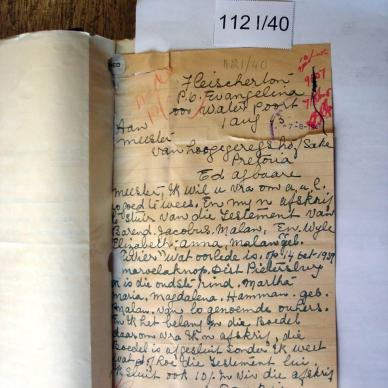 112 1/40
1121/40
Fleischerton
P.O. Evangelina
oor Waterpoort
1 aug
-7-8-
Aan
meester
van hooggeregshof Sake
Pretoria
Ed agbaare
meester Ek wil u vra om a,u,l,
so goed te wees, En my n afskrif
te stuur van die Testement van
Barend. Jacobus. Malan, En Wyle
Elizabeth. anna. malan geb.
wat oorlede is. op 14 oct 1939
marvelaknop. Dist Pietersburg
Ek is die oudste kind. Martha
Maria. Magdalena. Hamman. geb.
Malan. van bo genoemde ouhers.
En Ek het belang in die Boedel
daarom vra Ek n afskrif, die
Boedel is afgesluit sonder Ek weet
wat of hoe die Testement lui.
Ek sluit ook 10/- in vir die afskrif